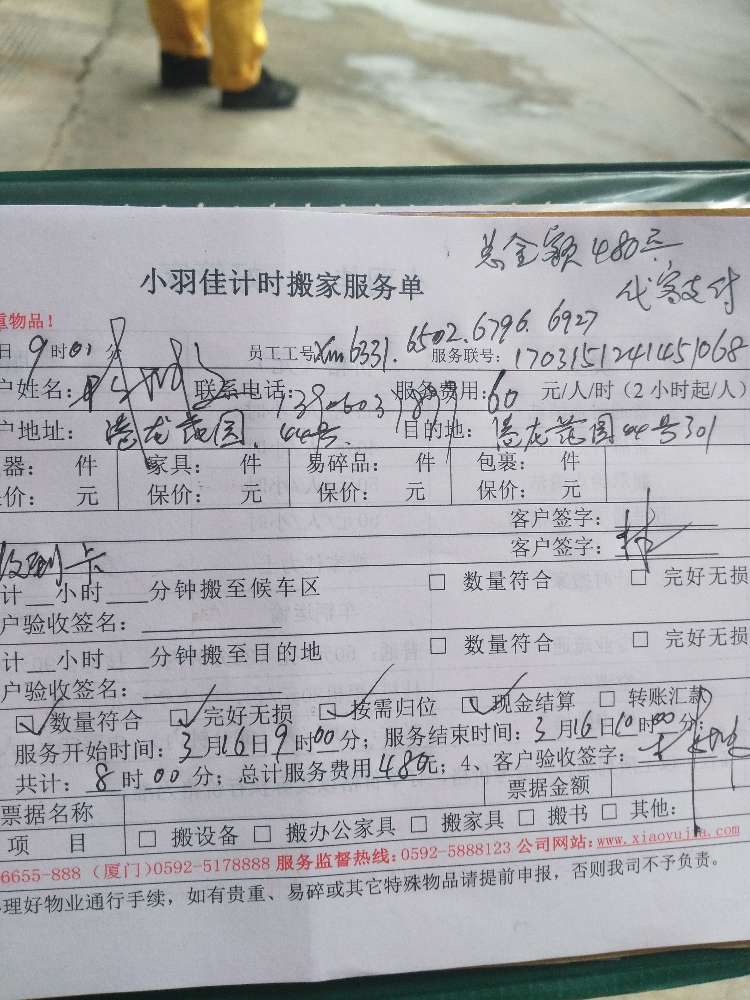 总金额480元
代客支付
小羽佳计时搬家服务单
重物品!
日9时00分 员工工号:Xm6331.6502.6796.6927 服务联号:1703151241451068
户姓名: 联系电话: 服务费用:60元/人/时(2小时起/人)
户地址: 龙花园.44号. 目的地: 龙花园44号301
器: 件 家具: 件 易碎品: 件 包裹: 件
保价: 元 保价: 元 保价: 元 保价: 元
客户签字:
客户签字:林
计__小时___分钟搬至候车区 □ 数量符合 □ 完好无损
户验收签名:
计__小时___分钟搬至目的地 □ 数量符合 □ 完好无损
户验收签名:
☑数量符合 ☑完好无损 ☑按需归位 ☑现金结算 □ 转账汇款
服务开始时间:3月16日9时00分;服务结束时间:3月16日10时00分;
共计:8时00分;总计服务费用480元;4、客户验收签字:
票据名称 票据金额
项 目 □ 搬设备 □ 搬办公家具 □ 搬家具 □ 搬书 □ 其他:
6655-888(厦门)0592-5178888 服务监督热线:0592-5888123 公司网站:www.xiaoyujia.com
理好物业通行手续,如有贵重、易碎或其它特殊物品请提前申报,否则我司不予负责。